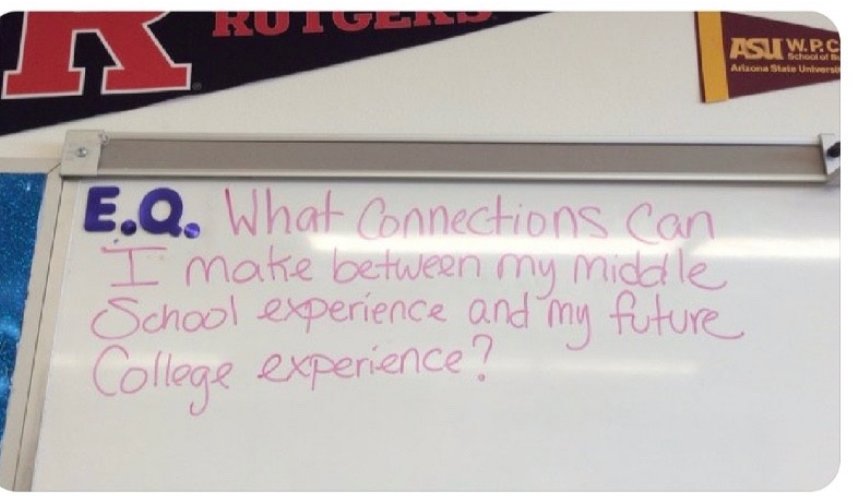 R RUTGERS
ASU W.P.C
School of
Arizona State
E.Q. What Connections Can
I make between my middle
School experience and my future
College experience?